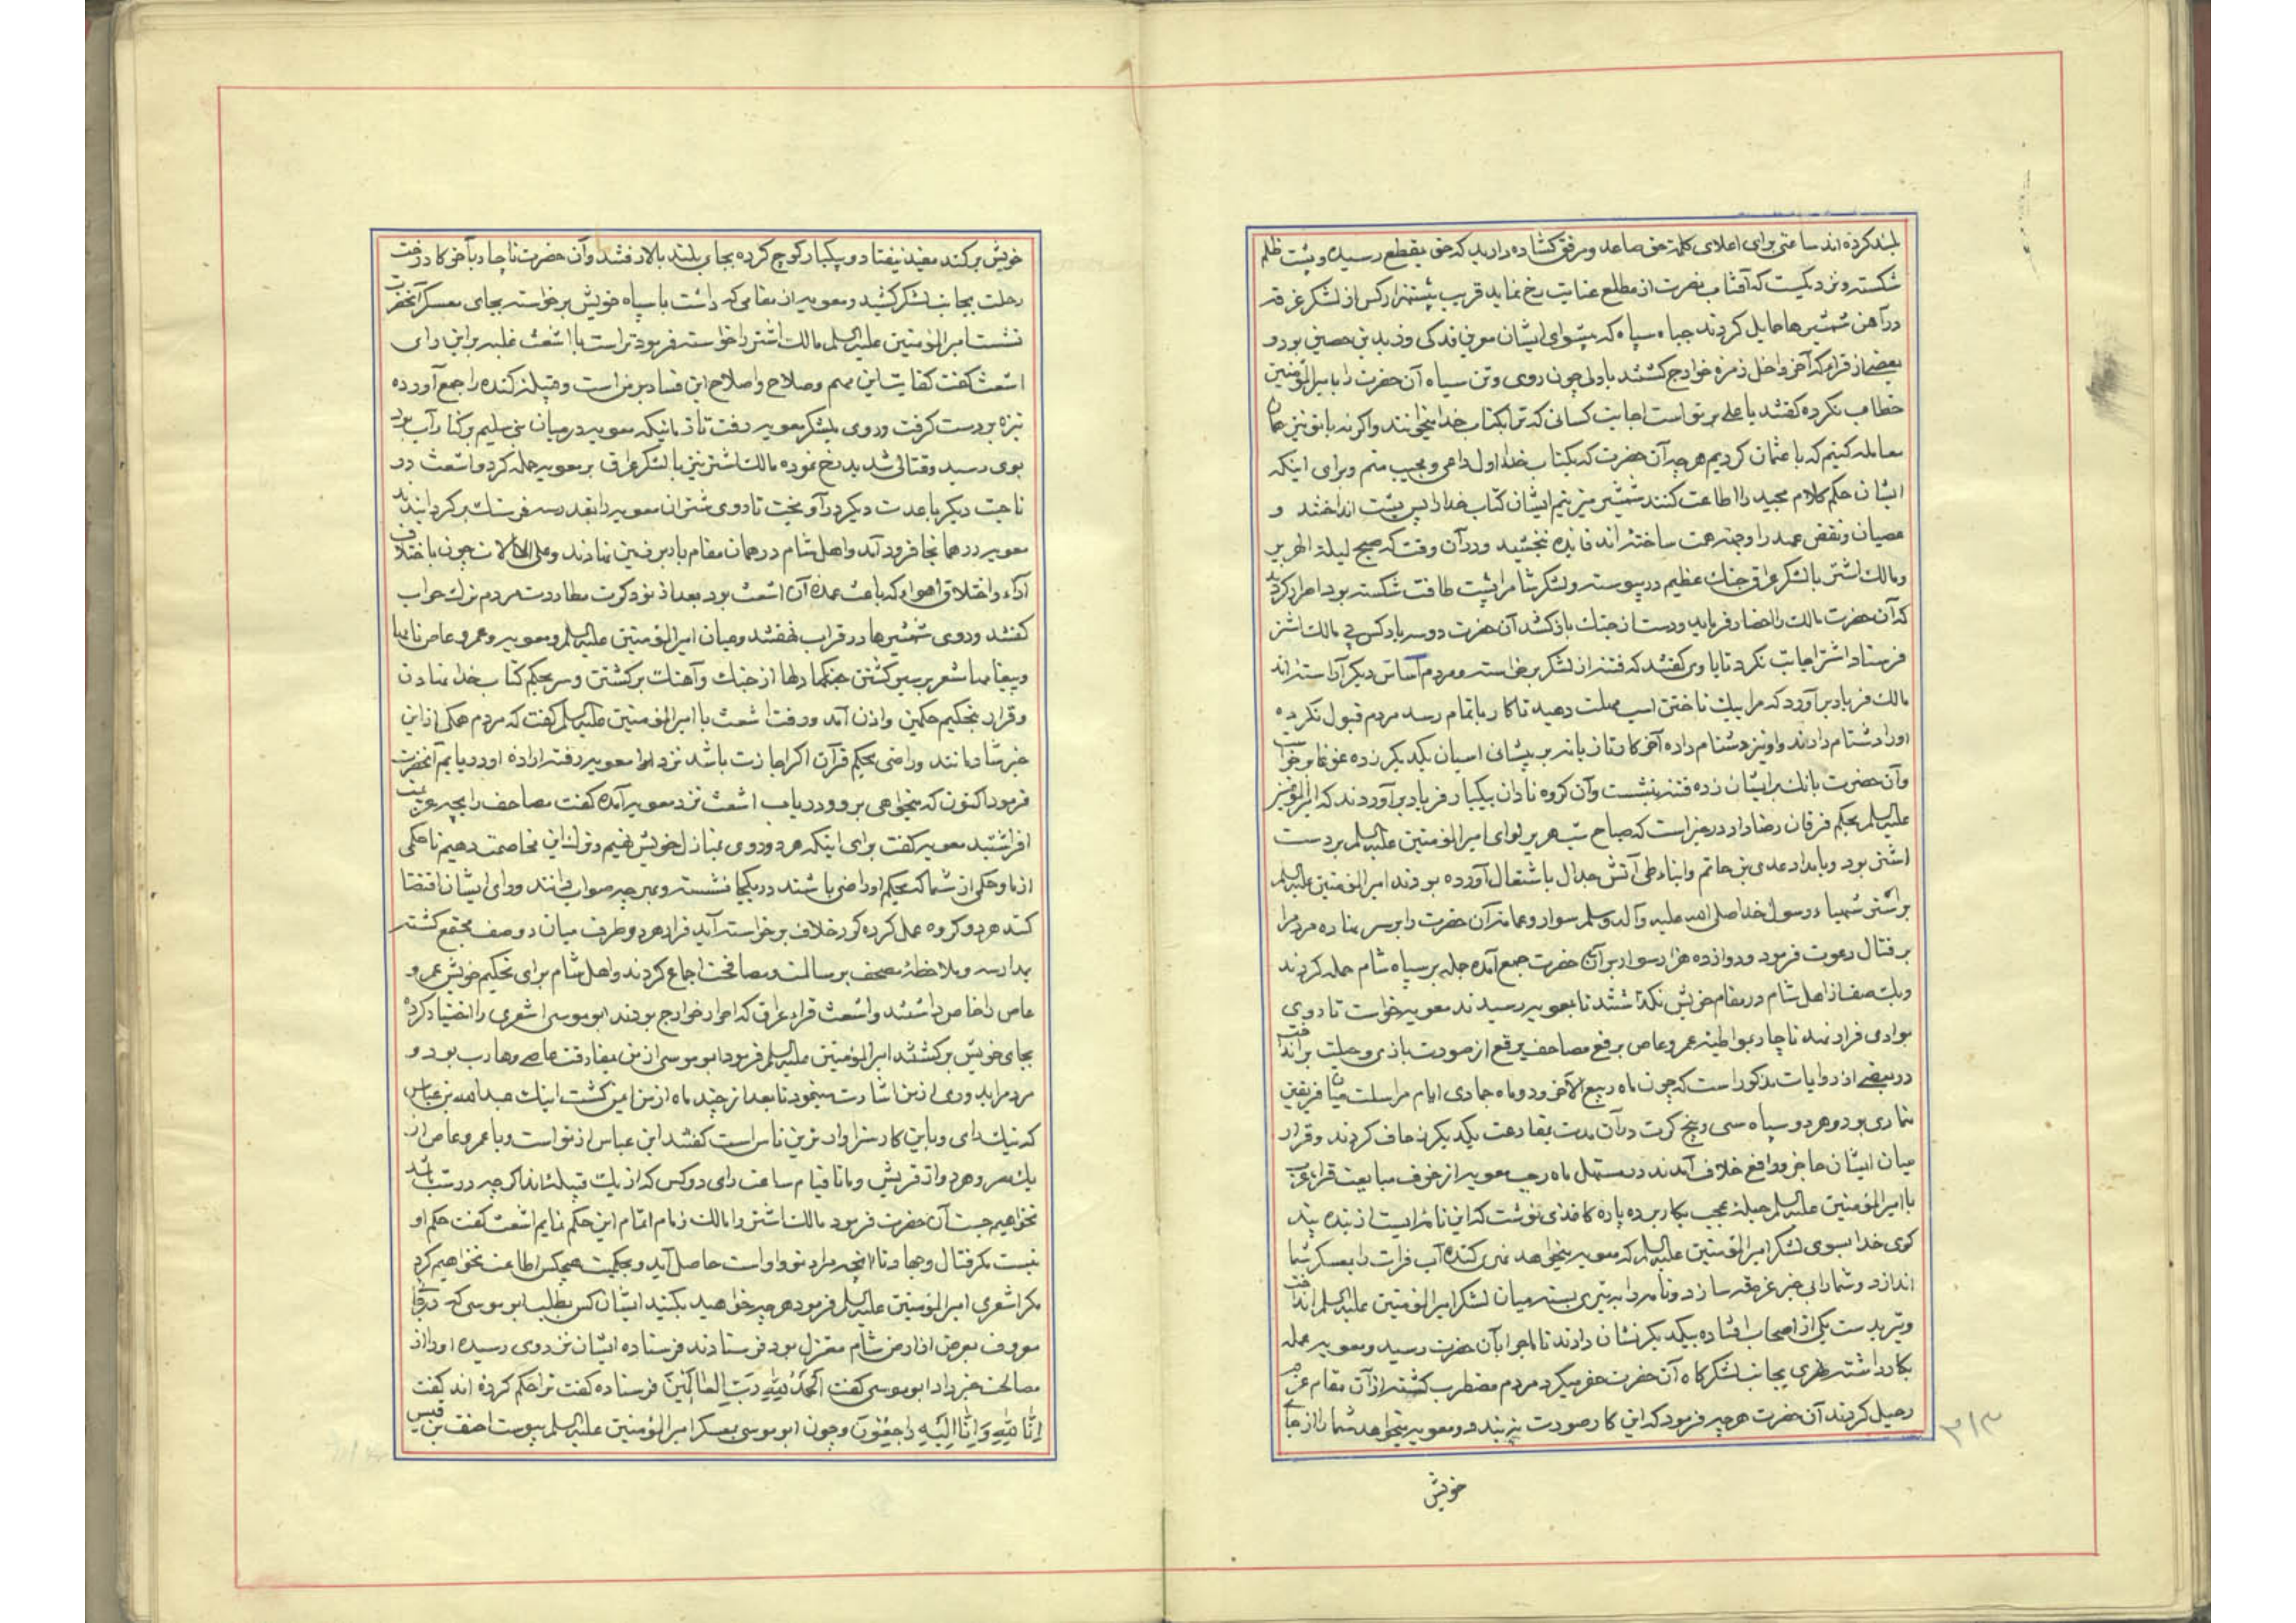 بلند کرده اند ساعتی برای اعلای کلمۀ حق صاعد و مرفق کشاده دارید که حق بقطع رسیده و پشت ظلم
شکسته و نزدیکست که آفتاب نصرت از مطلع عنایت رخ نماید قریب بیست هزار کس از لشکر غرقه
در آهن شمشیرها حمایل کردند جباه سیاه که پیشوای ایشان معرفدکی و زید بن حصین بود و
بعضی از قراء که آخر داخل زمرۀ خوارج کشتند با دلی چون روی و تن سیاه آن حضرت را بامیرالمؤمنین
خطاب نکرده کفتند یا علی بر تو است اجابت کسانی که ترا بکتاب خدا میخوانند و اکر نه با تو نیز همان
معامله کنیم که با عثمان کردیم هر چه آن حضرت که بکتاب خدا اول داعی و مجیب منم و برای اینکه
ایشان حکم کلام مجید را اطاعت کنند شمشیر میزنیم ایشان کتاب خدا را پس پشت انداختند و
عصیان و نقض عهد را وجهه همت ساخته اند فایده نبخشید و در آن وقت که صبح لیلة الهریر
و مالک اشتر با لشکر عراق جنک عظیم در پیوسته و لشکر شام را پشت طاقت شکسته بود اصرار کردند
که آن حضرت مالک را احضار فرماید و دست از جنک باز کشد آن حضرت دو سه بار کس پی مالک اشتر
فرستاد اشتر اجابت نکرد تا با وی کفتند که فتنه از لشکر برخاسته و مردم اساس دیکر آراسته اند
مالک فریاد برآورد که مرا بیک تاختن اسب مهلت دهید تا کار باتمام رسد مردم قبول نکرده
او را دشنام دادند و او نیز دشنام داده آخر کار تازیانه بر پیشانی اسبان یکدیکر زده غوغا برخواست
و آن حضرت بانک بر ایشان زده فتنه بنشست و آن کروه نادان بیکبار فریاد برآوردند که امیرالمؤمنین
علیه السلم بحکم فرقان رضا داد در خبر است که صباح شب هریر لوای امیرالمؤمنین علیه السلم بر دست
اشتر بود و بامداد عدی بن حاتم و ابناء طی آتش جدال باشتعال آورده بودند امیرالمؤمنین علیه السلم
بر اشتر شهباء رسول خدا صلی الله علیه و آله وسلم سوار و عمامۀ آن حضرت را بر سر نهاده مردم را
بر قتال دعوت فرمود و دوازده هزار سوار بر آن حضرت جمع آمده حمله بر سپاه شام حمله کردند
و یک صف از اهل شام در مقام خویش نکذاشتند تا بمعویه رسیدند معویه خواست تا روی
بوادی فرار نهد ناچار بمواطئه عمرو عاص برفع مصاحف برقع از صورت بازی و حیلت برانداخت
در بعضی از روایات مذکور است که چون ماه ربیع الآخر و دو ماه جمادی ایام مراسلت میان فریقین
متمادی بود و هر دو سپاه سی و پنج کرت در آن مدت بمقارعت یکدیکر زحاف کردند و قراء
میان ایشان حاجز و دافع خلاف آمدند در مستهل ماه رجب معویه از خوف مبایعت قراء عرب
با امیرالمؤمنین علیه السلم حیلۀ عجب بکار برده پارۀ کاغذی نوشت که این نامه ایست از بندۀ پند
کوی خدا بسوی لشکر امیرالمؤمنین علیه السلم که معویه میخواهد نهری کنده آب فرات را بمعسکر شما
اندازد و شما را بی خبر غرقه سازد و نامه را به تیری بسته میان لشکر امیرالمؤمنین علیه السلم انداخت
و تیر بدست یکی از اصحاب افتاده بیکدیکر نشان دادند تا ماجرا بآن حضرت رسید و معویه عمله
بکار داشته نهری بجانب لشکرکاه آن حضرت حفر میکرد مردم مضطرب کشته از آن مقام عزم
رحیل کردند آن حضرت هر چه فرمود که این کار صورت نبندد و معویه میخواهد شما را از جای
خویش
۳۱۳
خویش برکند مفید نیفتاد و بیکبار کوچ کرده بجای بلند بالا رفتند و آن حضرت ناچار بآخر کار رخت
رحلت بجانب لشکر کشید و معویه از مقامی که داشت با سپاه خویش برخواسته بجای معسکر آنحضرت
نشست امیرالمؤمنین علیه السلم مالک اشتر را خواسته فرمود تراست با اشعث غلبه بر این رای
اشعث کفت کفایت این مهم و صلاح و اصلاح این فساد بر من است و قبیله کنده را جمع آورده
نیزه بر دست کرفت و روی بلشکر معویه رفت تا زمانیکه معویه در میان بنی سلیم بر کنار آب بود
بوی رسید و قتالی شدید رخ نموده مالک اشتر نیز با لشکر عراق بر معویه حمله کرد و اشعث در
ناحیت دیکر با عدت دیکر در آویخت تا روی شتران معویه را بقدر سه فرسنک برکردانیدند
معویه در همانجا فرود آمد و اهل شام در همان مقام بار بر زمین نهادند و علی ای حال چون باختلاف
آراء و اختلاق اهواء که باعث عمده آن اشعث بود بعد از نود کرت مطاردت مردم ترک حراب
کفتند و روی شمشیرها در قراب نهفتند و میان امیرالمؤمنین علیه السلم و معویه و عمرو عاص نامها
و پیغامها مشعر بر سیر کشتن جنکها دلها از جنک و آهنک برکشتن و سر بحکم کتاب خدا نهادن
و قرار بتحکیم حکمین و اذن آمد و رفت اشعث با امیرالمؤمنین علیه السلم کفت که مردم همکی از این
خبر شادمانند و راضی بحکم قرآن اکر اجازت باشد نزد معویه رفته ارادۀ او دریابم آنحضرت
فرمود اکنون که میخواهی برو و دریاب اشعث نزد معویه آمده کفت مصاحف را بچه عزیمت
افراشتید معویه کفت برای اینکه هر دو روی بمنازل خویش نهیم و ترک این مخاصمت دهیم تا حکمی
از ما و حکمی از شما که بحکم او راضی باشند در یکجا نشسته و بهر چه صواب دانند و رای ایشان اقتضا
کند هر دو کروه عمل کرده کرد خلاف برخواسته آید قراء هر دو طرف میان دو صف مجتمع کشته
بدارسه و ملاحظۀ مصحف بر سالمت و مصافحت اجماع کردند و اهل شام برای تحکیم خویش عمرو
عاص را خاص داشتند و اشعث قراء عراق که احرار خوارج بودند ابو موسی اشعری را اختیار کرده
بجای خویش برکشتند امیرالمؤمنین علیه السلم فرمود ابو موسی از من بمفارقت عاصی و هارب بود و
مردم را بدوری از من اشارت مینمود تا بعد از چند ماه از من ایمن کشت اینک عبدالله بن عباس
که نیک رای و باین کار سزاوارترین ناس است کفتند ابن عباس از تو است و با عمرو عاص از
یک سر و هر دو از قریش و ما تا قیام ساعت رای دو کس که از یک قبیله اند اکر چه درست باشد
نخواهیم جست آن حضرت فرمود مالک اشتر را مالک زمام اتمام این حکم نمایم اشعث کفت حکم او
نیست مکر قتال و جهاد تا آنچه مراد تو و او است حاصل آید و بحکمیت هیچکس اطاعت نخواهیم کرد
مکر اشعری امیرالمؤمنین علیه السلم فرمود هر چه خواهید بکنید ایشان کس بطلب ابو موسی که در
معروف بعرض از ارض شام معتزل بود فرستادند فرستاده ایشان نزد وی رسیده او را از
مصالحت خبر داد ابو موسی کفت اَلحَمدُ لِلّهِ رَبِّ العالَمینَ فرستاده کفت ترا حکم کرده اند کفت
اِنّا لِلّهِ وَ اِنّا اِلَیهِ راجِعُونَ و چون ابو موسی بعسکر امیرالمؤمنین علیه السلم پیوست احنف بن قیس